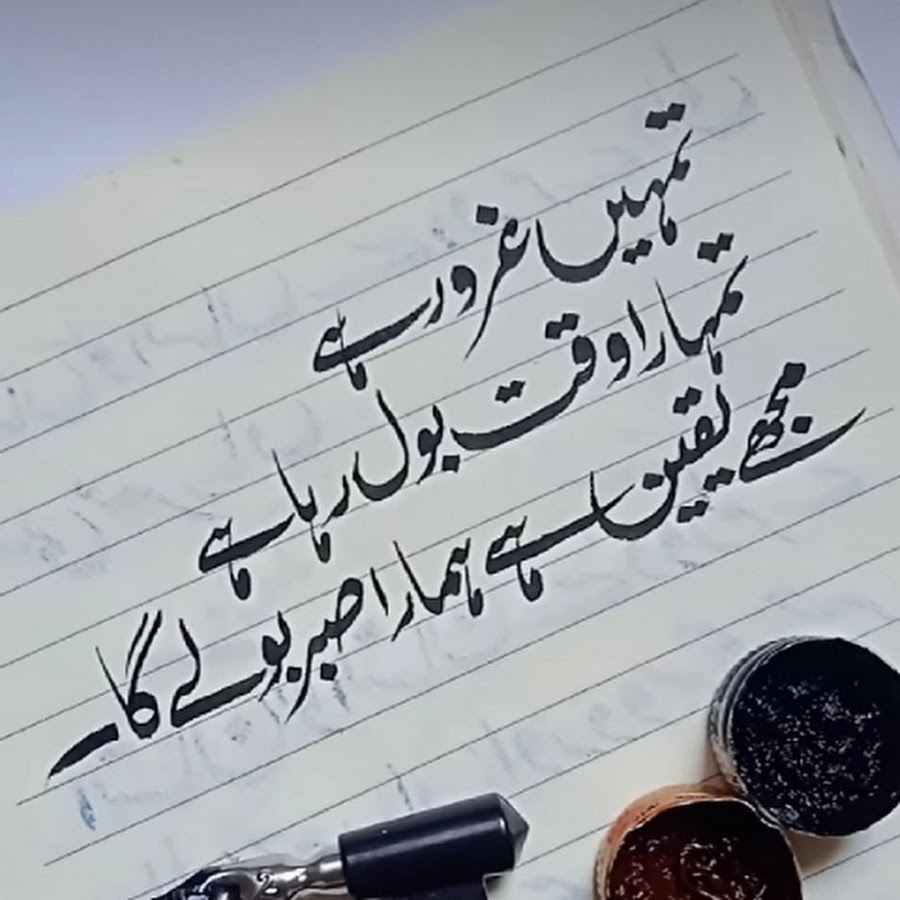 تمہیں غرور ہے
تمہارا وقت بول رہا ہے
مجھے یقین ہے ہمارا صبر بولے گا۔